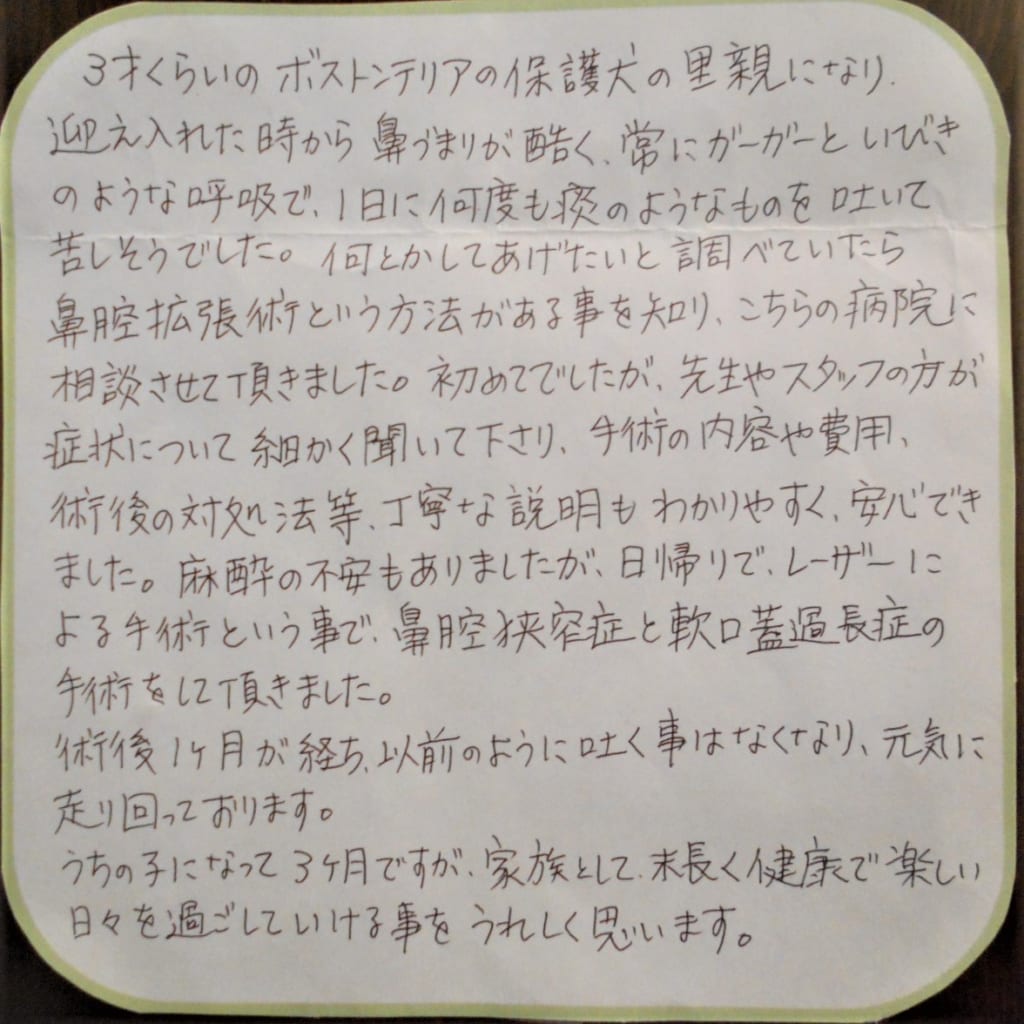 3才くらいの ボストンテリアの保護犬の里親になり、
迎え入れた時から 鼻づまりが酷く、常にガーガーといびき
のような呼吸で、1日に何度も痰のようなものを吐いて
苦しそうでした。何とかしてあげたいと調べていたら
鼻腔拡張術という方法がある事を知り、こちらの病院に
相談させて頂きました。初めてでしたが、先生やスタッフの方が
症状について細かく聞いて下さり、手術の内容や費用、
術後の対処法等、丁寧な説明もわかりやすく、安心でき
ました。麻酔の不安もありましたが、日帰りで、レーザーに
よる手術という事で、鼻腔狭窄症と軟口蓋過長症の
手術をして頂きました。
術後1ヶ月が経ち、以前のように吐く事はなくなり、元気に
走り回っております。
うちの子になって3ヶ月ですが、家族として、末長く健康で楽しい
日々を過ごしていける事をうれしく思います。